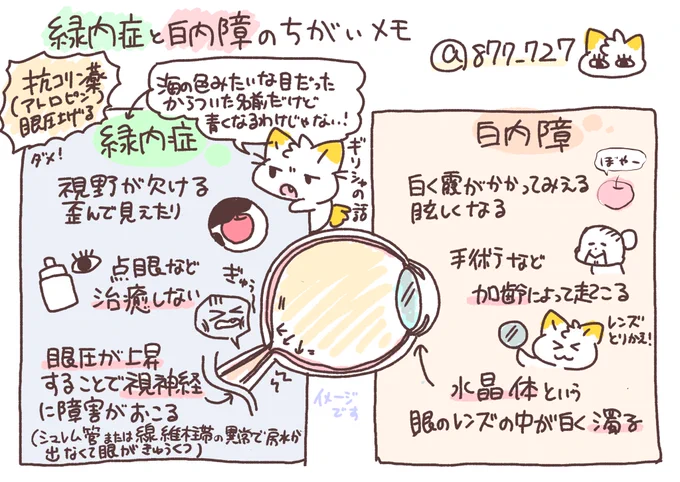 緑内症と白内障のちがいメモ
@877_727
抗コリン薬
(アトロピン)
眼圧上げる
ダメ!
海の色みたいな目だった
からついた名前だけど
青くなるわけじゃない…!
ギリシャの話
緑内症
視野が欠ける
歪んで見えたり
点眼など
治癒しない
ぎゅう
眼圧が上昇
することで視神経
に障害がおこる
(シュレム管または線維柱帯の異常で房水が
出なくて眼がきゅうくつ)
イメージ
です
白内障
ぼやー
白く霞がかかってみえる
眩しくなる
手術など
加齢によって起こる
レンズ
とりかえ!
水晶体という
眼のレンズの中が白く濁る